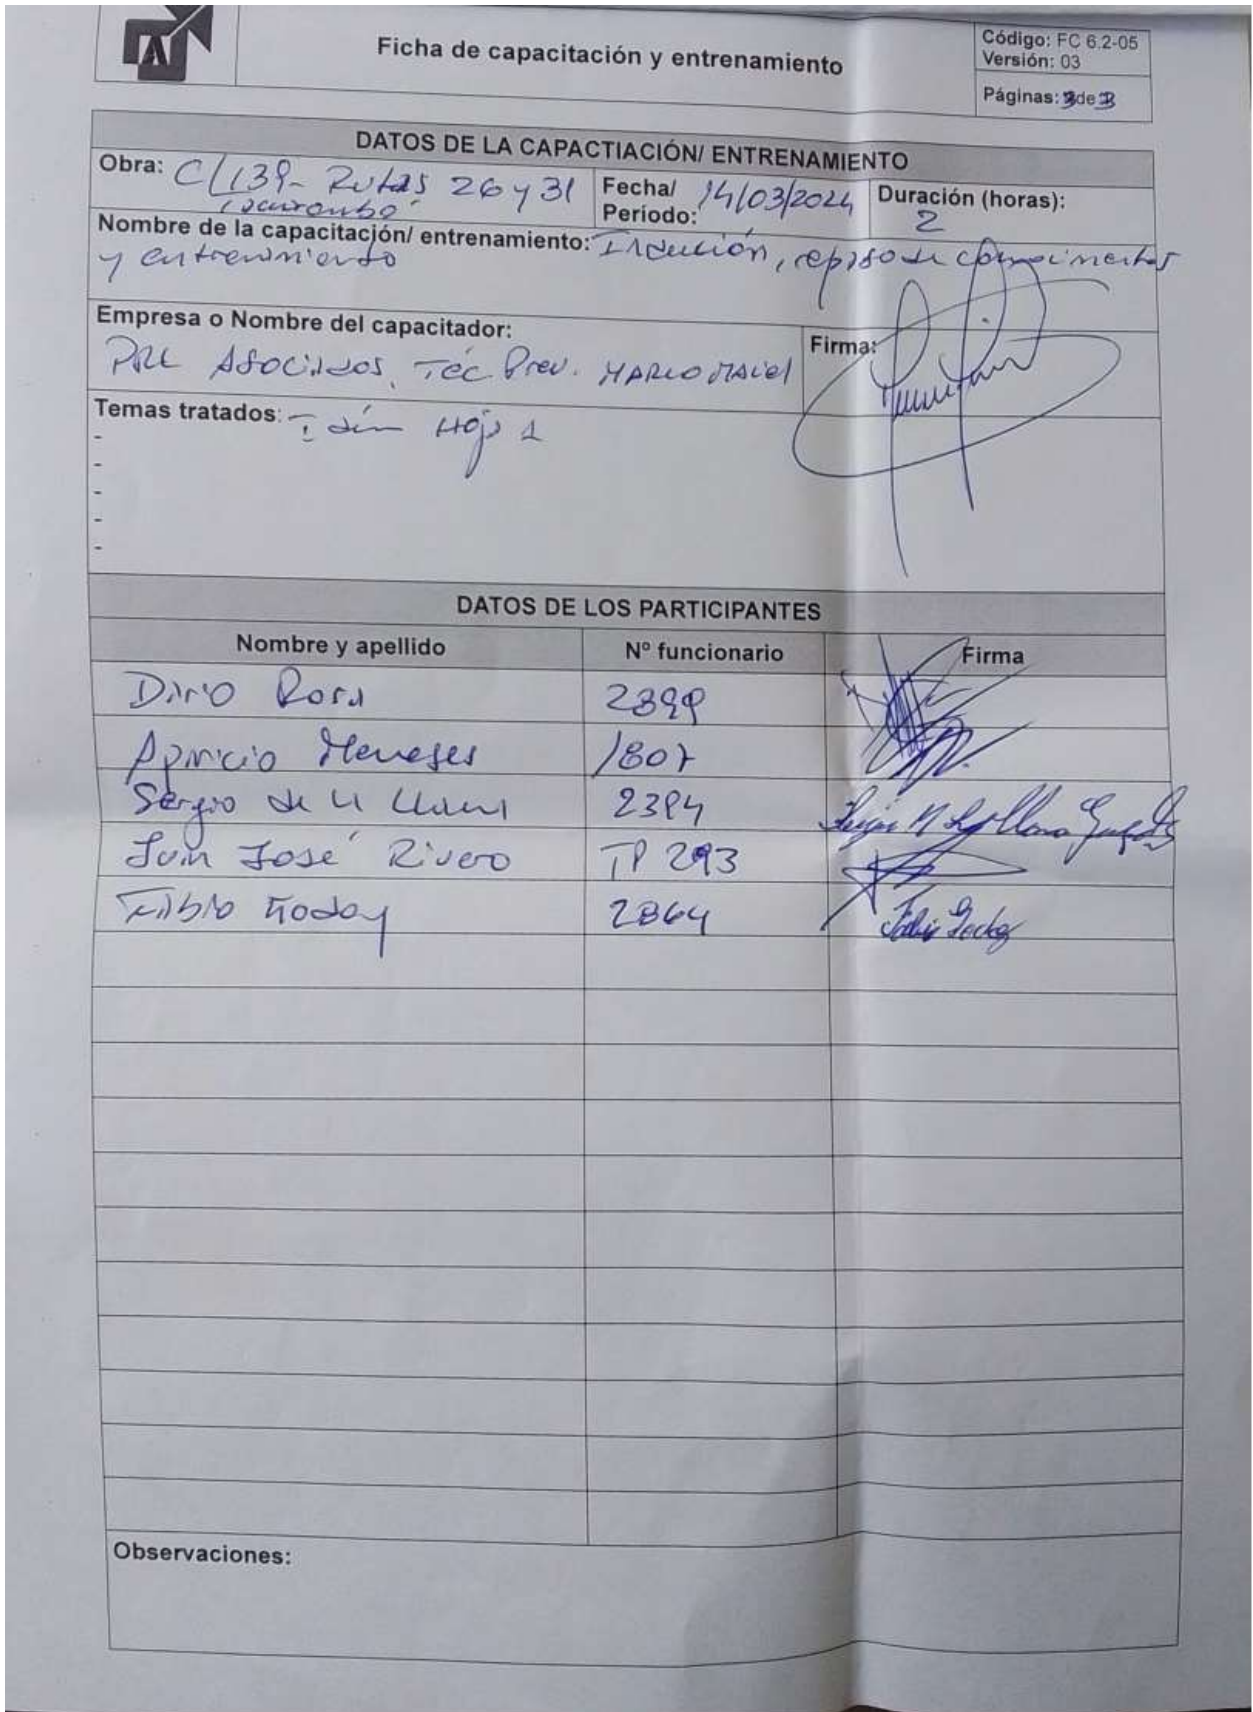 Ficha de capacitación y entrenamiento
Código: FC 6.2-05
Versión: 03
Páginas: 3 de 3
DATOS DE LA CAPACTIACIÓN/ ENTRENAMIENTO
Obra: C/139- Rutas 26 y 31
Fecha/ Período: 14/03/2024
Duración (horas): 2
Nombre de la capacitación/ entrenamiento: Indución, repaso de
y entrenamiento
Empresa o Nombre del capacitador:
Firma:
Asociados, Téc Prev. Marco Maciel
Temas tratados: Idem Hoja 1
-
-
-
-
-
DATOS DE LOS PARTICIPANTES
Nombre y apellido Nº funcionario Firma
Dario Rosa 2899
Aparicio Meneses 1807
Sergio de la Llana 2384
Juan José Rivero TP 293
Fabio Godoy 2864 Fabio Godoy
Observaciones: